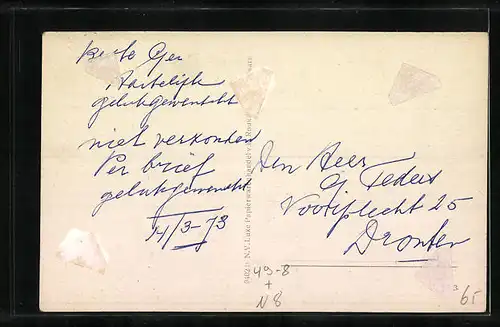 beste Ger
Hartelijk
gelukgewenscht
niet verkonden
Per brief
gelukgewenscht
14/3-73
Den Heer
G. Feders
Voorplecht 25
Dronten
N.V. Luxe Papierwarenhandel v/h
49-8
+
N8
3
65